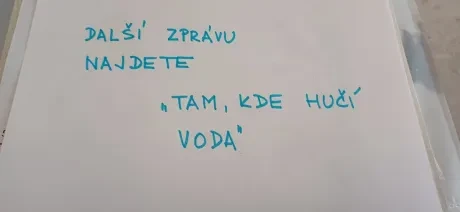 DALŠÍ ZPRÁVU
NAJDETE
„TAM, KDE HUČÍ
VODA"